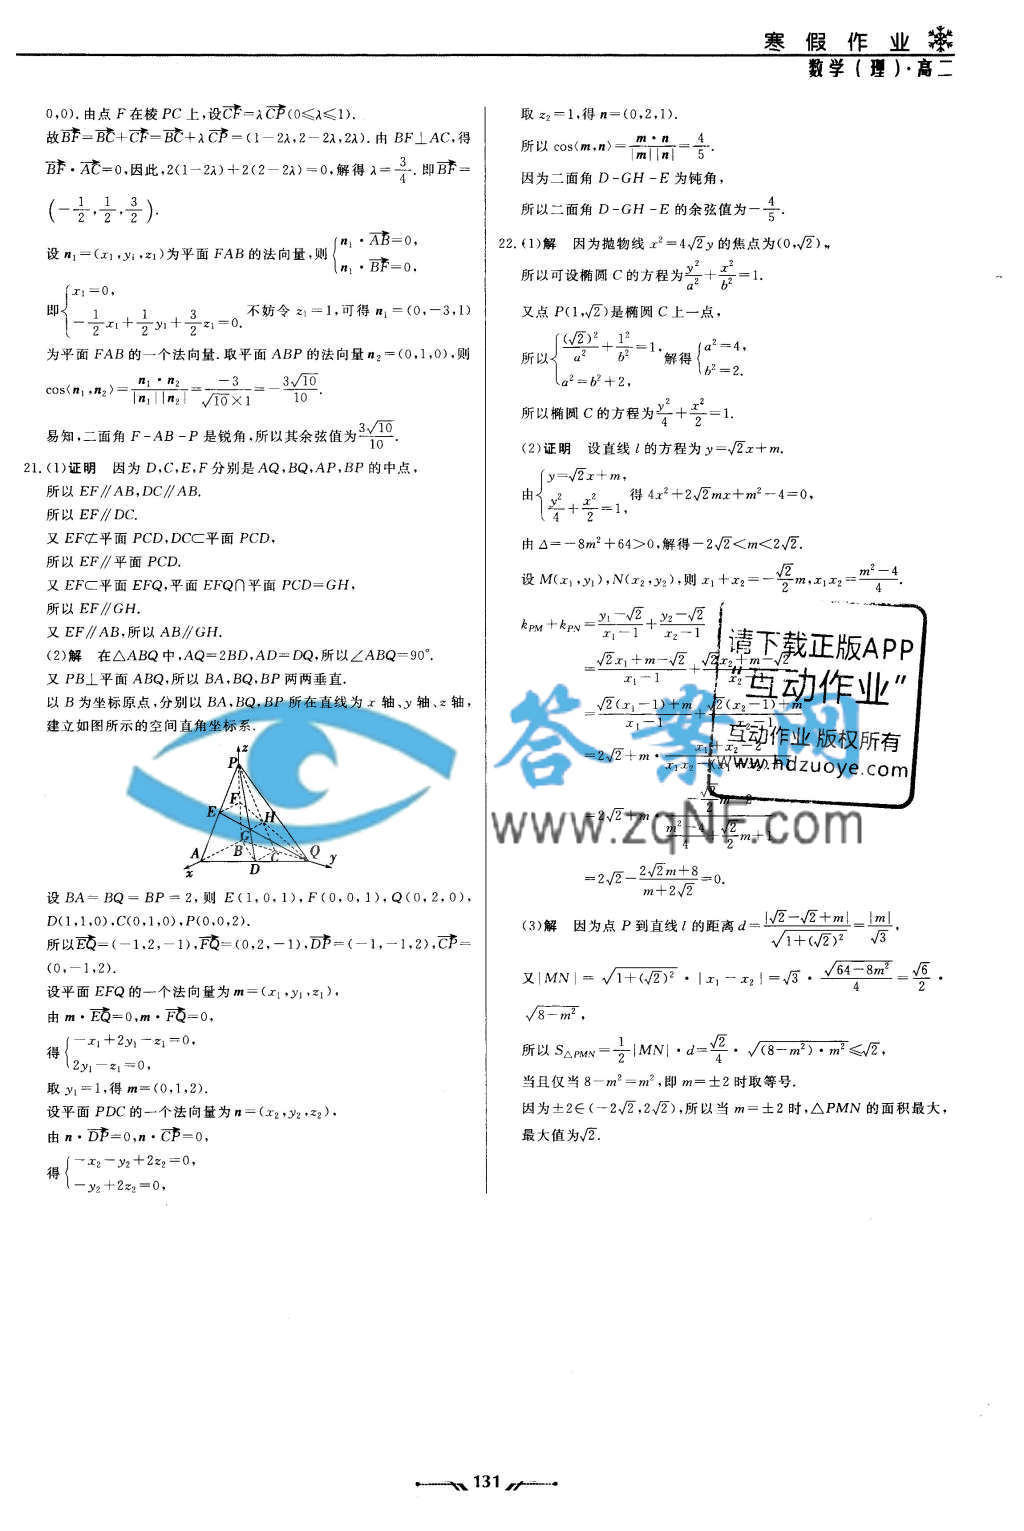 寒 假 作 业
数学(理)·高二
0,0).由点 F 在棱 PC 上,设CF→=λCP→(0≤λ≤1).
故BF→=BC→+CF→=BC→+λCP→=(1-2λ,2-2λ,2λ).由 BF⊥AC,得
BF→·AC→=0,因此,2(1-2λ)+2(2-2λ)=0,解得 λ=3/4.即BF→=
(-1/2,1/2,3/2).
设 n₁=(x₁,y₁,z₁)为平面 FAB 的法向量,则{n₁·AB→=0, n₁·BF→=0,
即{x₁=0, -1/2x₁+1/2y₁+3/2z₁=0. 不妨令 z₁=1,可得 n₁=(0,-3,1)
为平面 FAB 的一个法向量.取平面 ABP 的法向量 n₂=(0,1,0),则
cos⟨n₁,n₂⟩=n₁·n₂/|n₁||n₂|=-3/(√10×1)=-3√10/10.
易知,二面角 F-AB-P 是锐角,所以其余弦值为3√10/10.
21.(1)证明 因为 D,C,E,F 分别是 AQ,BQ,AP,BP 的中点,
所以 EF∥AB,DC∥AB.
所以 EF∥DC.
又 EF⊄平面 PCD,DC⊂平面 PCD,
所以 EF∥平面 PCD.
又 EF⊂平面 EFQ,平面 EFQ∩平面 PCD=GH,
所以 EF∥GH.
又 EF∥AB,所以 AB∥GH.
(2)解 在△ABQ 中,AQ=2BD,AD=DQ,所以∠ABQ=90°.
又 PB⊥平面 ABQ,所以 BA,BQ,BP 两两垂直.
以 B 为坐标原点,分别以 BA,BQ,BP 所在直线为 x 轴、y 轴、z 轴,
建立如图所示的空间直角坐标系.
z
P
F
E
H
G
A
B
C
Q
y
x
D
设 BA=BQ=BP=2,则 E(1,0,1),F(0,0,1),Q(0,2,0),
D(1,1,0),C(0,1,0),P(0,0,2).
所以EQ→=(-1,2,-1),FQ→=(0,2,-1),DP→=(-1,-1,2),CP→=
(0,-1,2).
设平面 EFQ 的一个法向量为 m=(x₁,y₁,z₁),
由 m·EQ→=0,m·FQ→=0,
得{-x₁+2y₁-z₁=0, 2y₁-z₁=0,
取 y₁=1,得 m=(0,1,2).
设平面 PDC 的一个法向量为 n=(x₂,y₂,z₂),
由 n·DP→=0,n·CP→=0,
得{-x₂-y₂+2z₂=0, -y₂+2z₂=0,
取 z₂=1,得 n=(0,2,1).
所以 cos⟨m,n⟩=m·n/|m||n|=4/5.
因为二面角 D-GH-E 为钝角,
所以二面角 D-GH-E 的余弦值为-4/5.
22.(1)解 因为抛物线 x²=4√2y 的焦点为(0,√2),
所以可设椭圆 C 的方程为y²/a²+x²/b²=1.
又点 P(1,√2)是椭圆 C 上一点,
所以{(√2)²/a²+1²/b²=1, a²=b²+2, 解得{a²=4, b²=2.
所以椭圆 C 的方程为y²/4+x²/2=1.
(2)证明 设直线 l 的方程为 y=√2x+m.
由{y=√2x+m, y²/4+x²/2=1, 得 4x²+2√2mx+m²-4=0,
由 Δ=-8m²+64>0,解得-2√2<m<2√2.
设 M(x₁,y₁),N(x₂,y₂),则 x₁+x₂=-√2/2m,x₁x₂=(m²-4)/4.
k_PM+k_PN=(y₁-√2)/(x₁-1)+(y₂-√2)/(x₂-1)
=(√2x₁+m-√2)/(x₁-1)+(√2x₂+m-√2)/(x₂-1)
=(√2(x₁-1)+m)/(x₁-1)+(√2(x₂-1)+m)/(x₂-1)
=2√2+m·
=2√2+m·
=2√2-(2√2m+8)/(m+2√2)=0.
(3)解 因为点 P 到直线 l 的距离 d=|√2-√2+m|/√(1+(√2)²)=|m|/√3,
又|MN|=√(1+(√2)²)·|x₁-x₂|=√3·√(64-8m²)/4=√6/2·
√(8-m²),
所以 S△PMN=1/2|MN|·d=√2/4·√((8-m²)·m²)≤√2,
当且仅当 8-m²=m²,即 m=±2 时取等号.
因为±2∈(-2√2,2√2),所以当 m=±2 时,△PMN 的面积最大,
最大值为√2.
请下载正版APP
“互动作业”
互动作业 版权所有
www.hdzuoye.com
答案网
www.zqNF.com
131